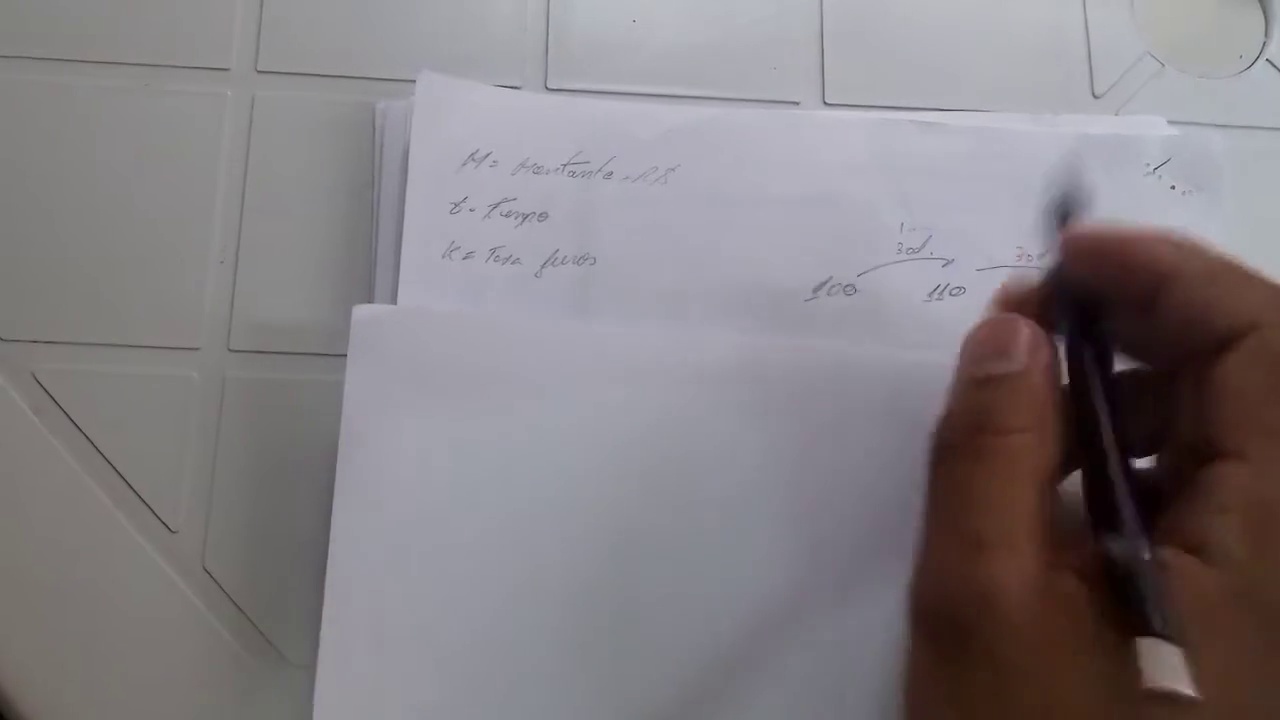 M= Montante - R$
t - Tempo
K = Taxa juros
30d. 30d
100 110